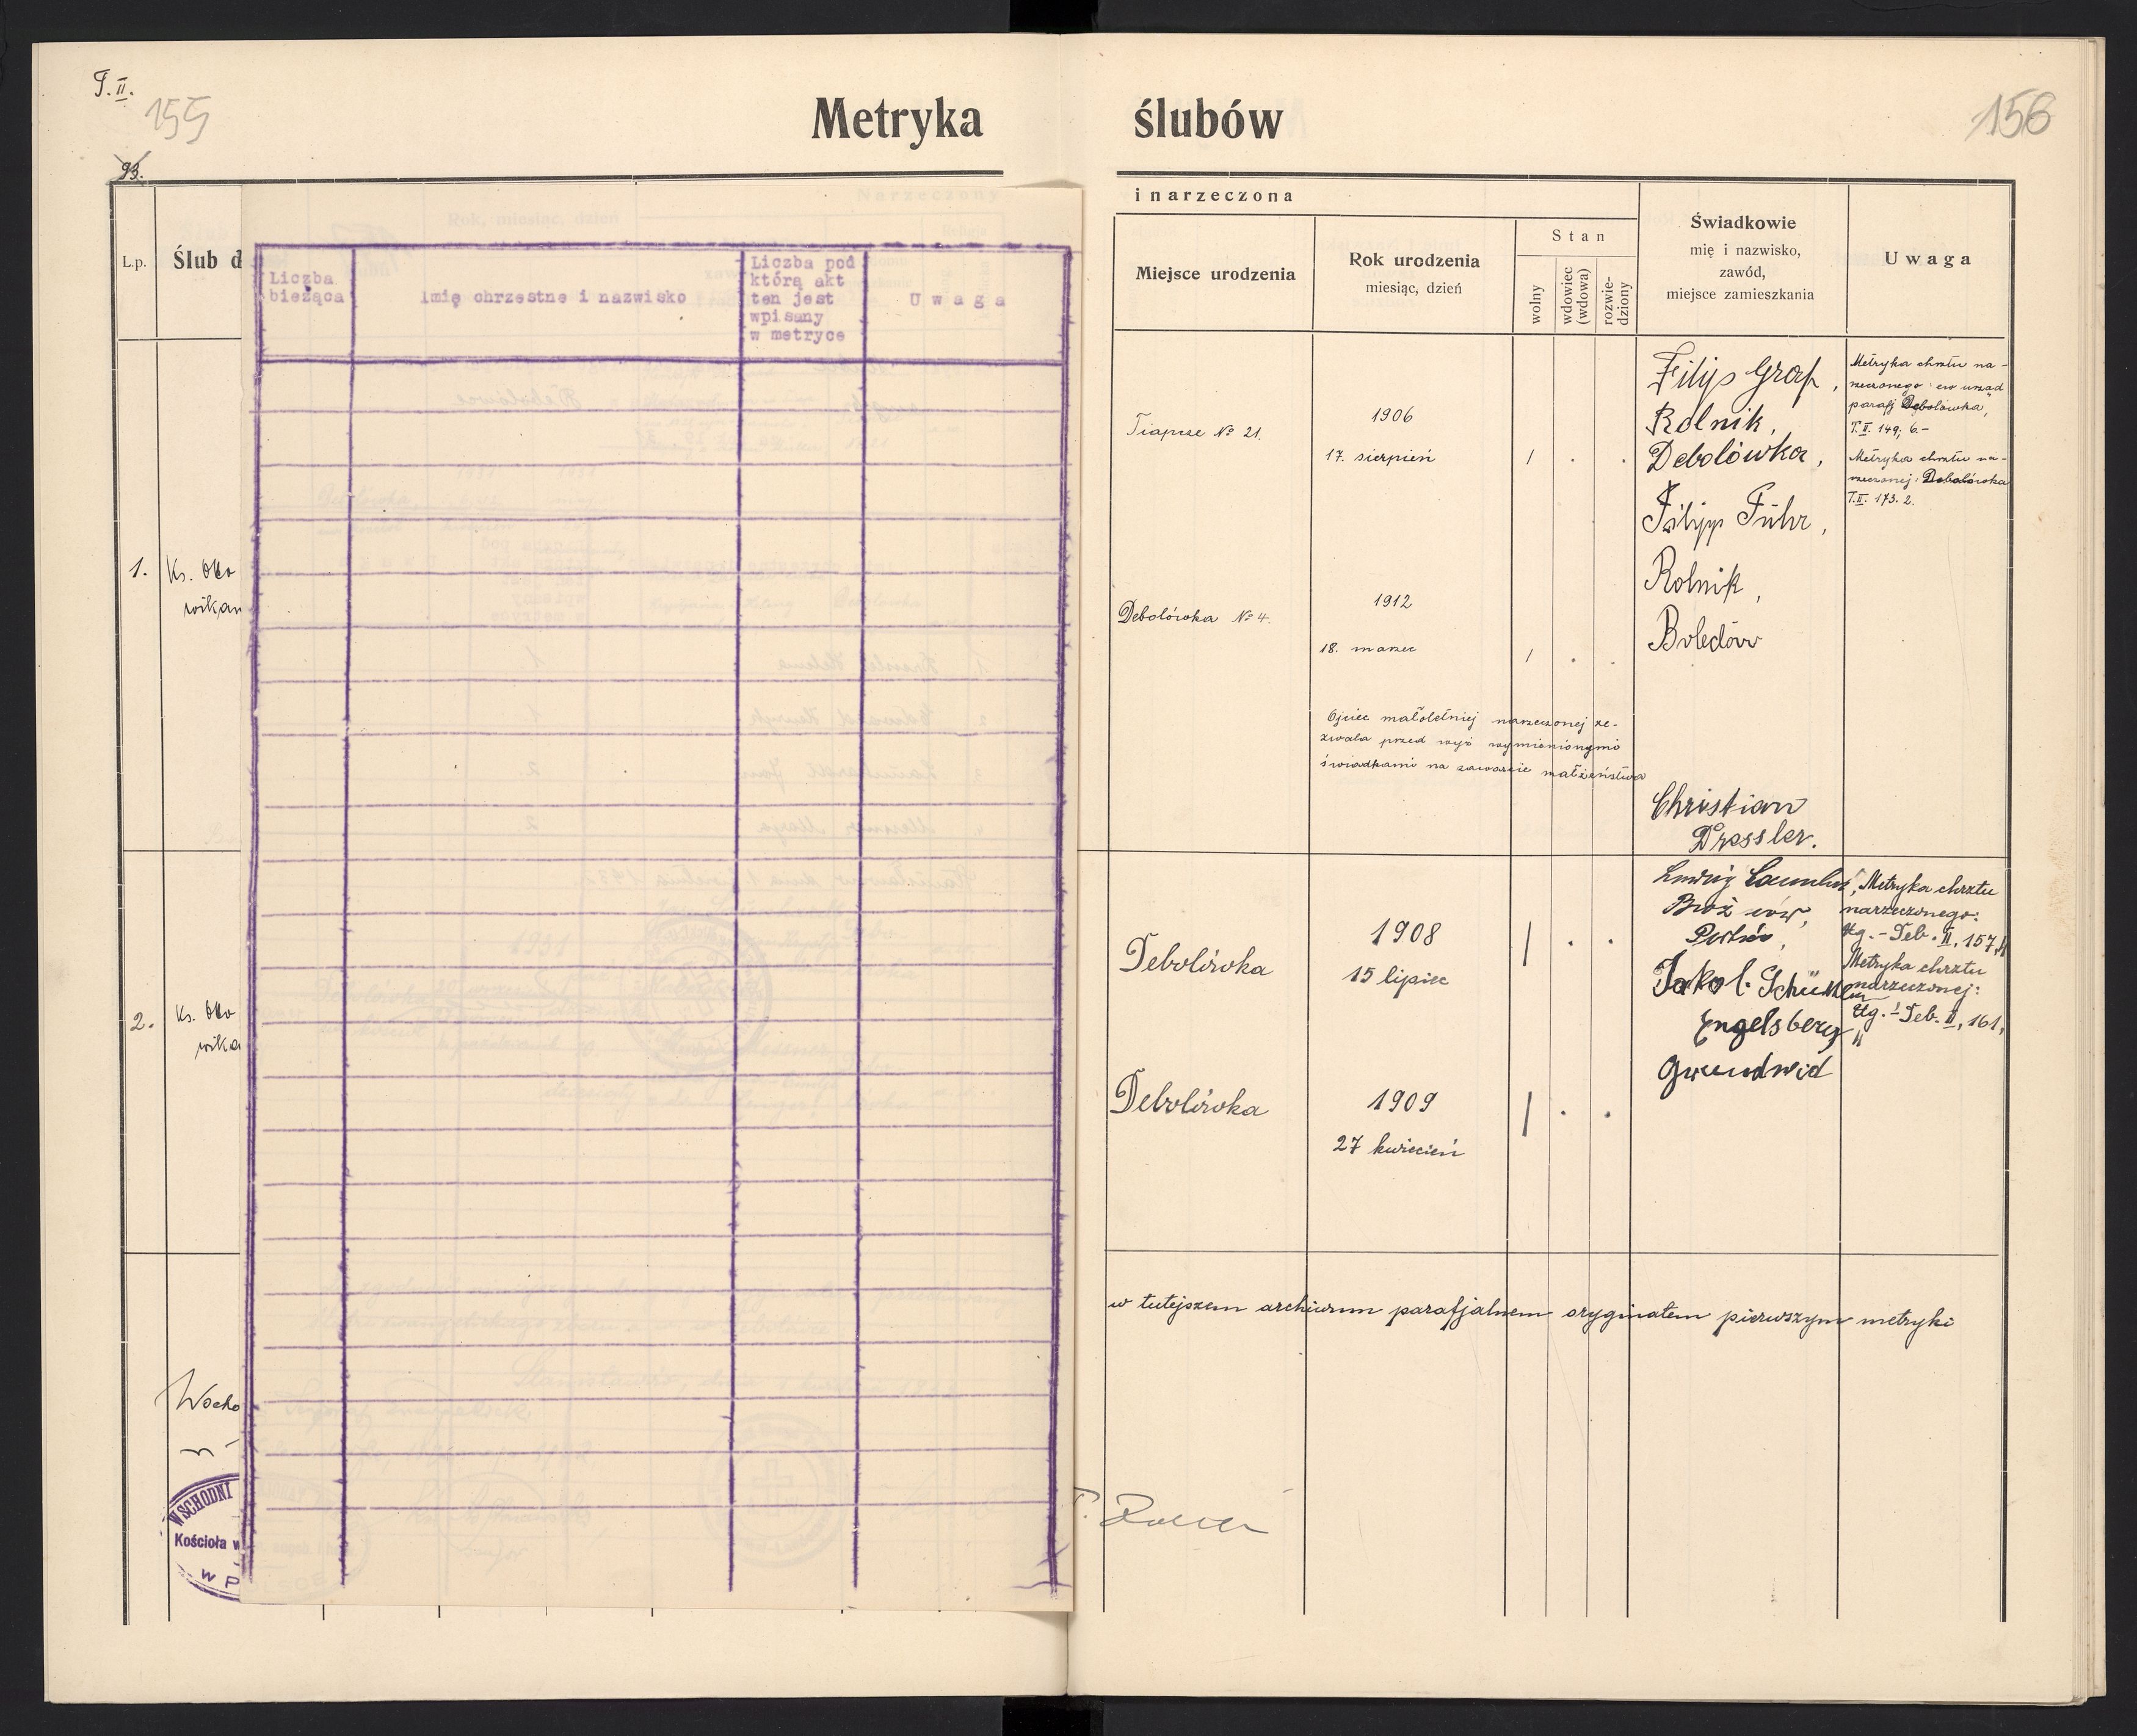 T. II.
155
93.
Metryka ślubów
156
L.p.
Ślub d
Liczba
bieżąca
Imię chrzestne i nazwisko
Liczba pod
którą akt
ten jest
wpisany
w metryce
U w a g a
i narzeczona
Miejsce urodzenia
Rok urodzenia
miesiąc, dzień
Stan
wolny
wdowiec
(wdowa)
rozwie-
dziony
Świadkowie
mię i nazwisko,
zawód,
miejsce zamieszkania
Uwaga
1.
Ks.
wikar
Tiapcze № 21.
1906
17. sierpień
/ . .
Filip Graf,
Rolnik,
Debolówka,
Filipp Führ,
Rolnik,
Boledów
Metryka chrztu na-
rzeczonego: ew urząd
parafj Debolówka,
T. II. 149; 6.-
Metryka chrztu na-
rzeczonej: Debolówka
T. II. 173. 2.
Debolówka № 4.
1912
18. marzec
/ . .
Ojciec małoletniej narzeczonej ze-
zwala przed wyż wymienionymi
świadkami na zawarcie małżeństwa
Christian
Dressler.
2.
Ks.
wika
Debolówka
1908
15 lipiec
/ . .
Ludwig
Jakob
Engelsberg
Metryka chrztu
narzeczonego:
Ug. - Deb. II, 157,
Metryka chrztu
narzeczonej:
Ug. - Deb. II, 161,
Debolówka
1909
27 kwiecień
/ . .
w tutejszem archiwum parafjalnem oryginałem pierwszym metryki
Wscho
WSCHODNI
Kościoła w
W P